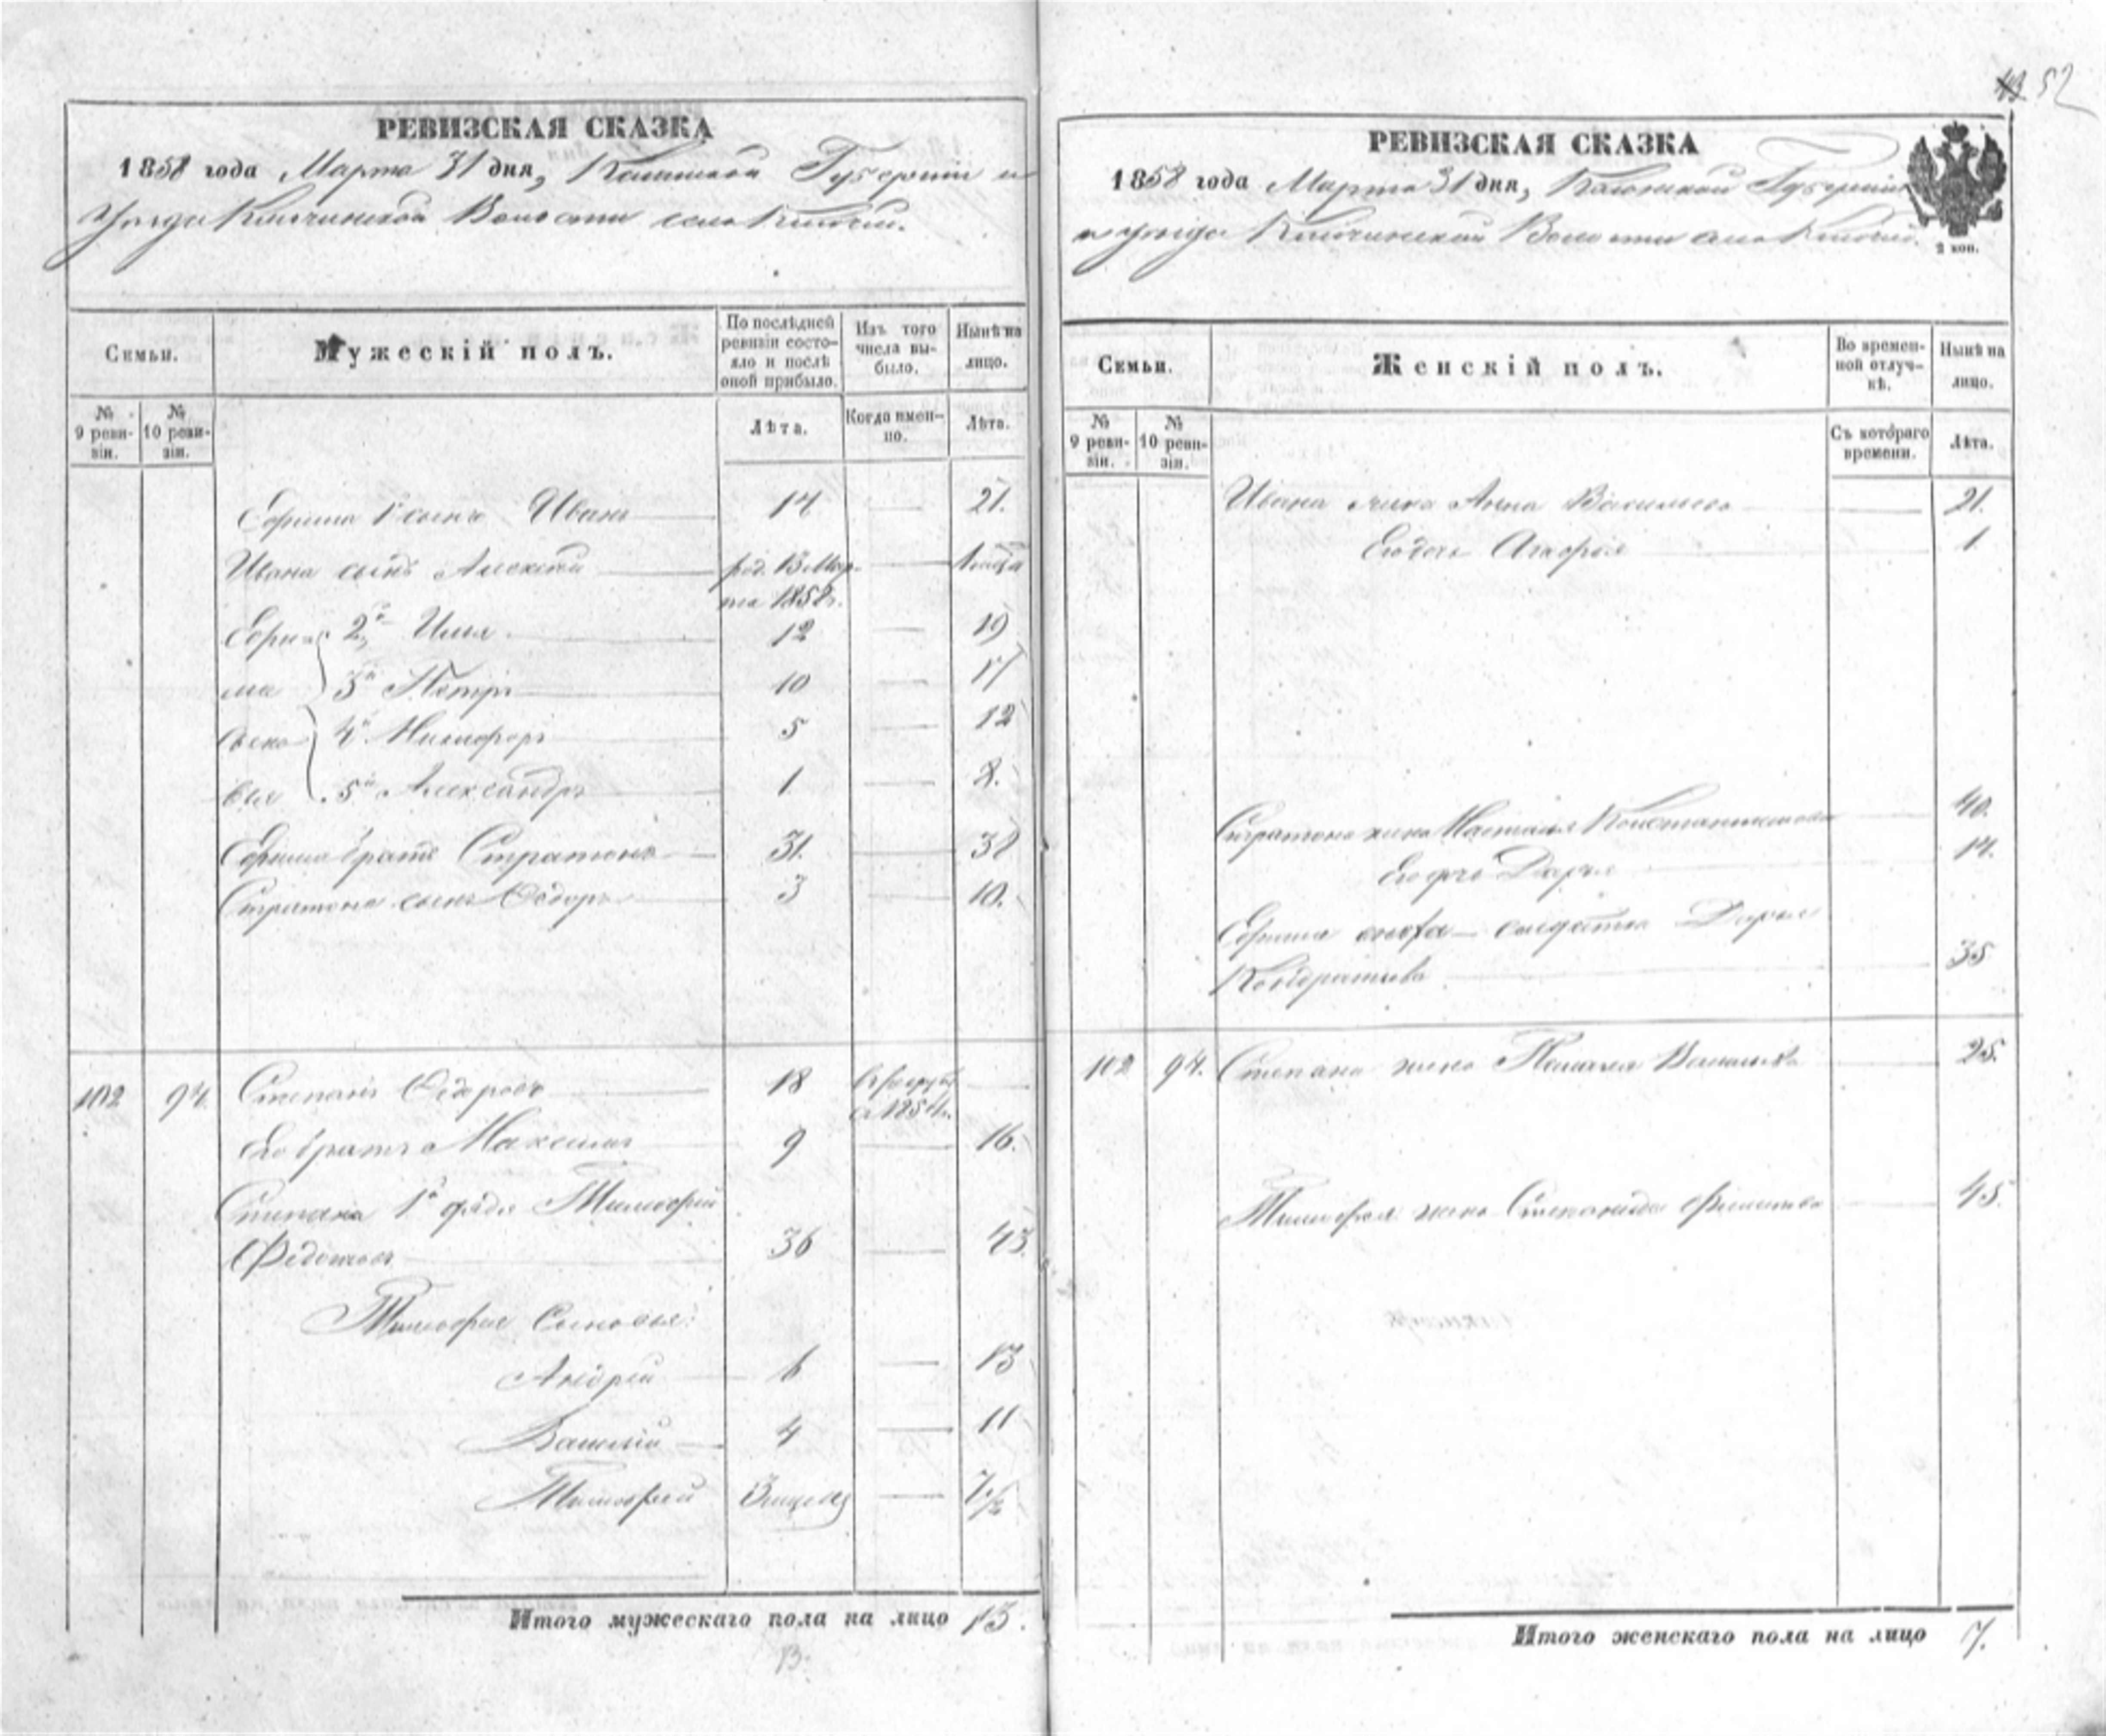 52
РЕВИЗСКАЯ СКАЗКА
1858 года Марта 31 дня, Губернiи и
Уѣзда Волости село
Семьи.
Мужескiй полъ.
По послѣдней ревизiи состояло и послѣ оной прибыло.
Изъ того числа выбыло.
Нынѣ на лицо.
№ 9 ревизiи.
№ 10 ревизiи.
Лѣта.
Когда именно.
Лѣта.
1й сынъ Иванъ 14 — 21.
Ивана сынъ Алексѣй род. 13 Мар- —
та 1858 г.
2й Илья 12 — 19
3й Петръ 10 — 17
4й Никифоръ 5 — 12
5й Александръ 1 — 8.
братъ Стратонъ 31. — 38
Стратона сынъ Ѳедоръ 3 — 10.
102 94. Степанъ 18 —
1854.
Его братъ Максимъ 9 — 16.
Степана 1й дядя Тимофей
Федотовъ 36 — 43.
Тимофея Сыновья:
Андрей 6 — 13
Василiй 4 — 11
Тимофей — 7½
Итого мужескаго пола на лицо 13.
13.
РЕВИЗСКАЯ СКАЗКА
1858 года Марта 31 дня, Калужской Губернiи
и уѣзда Волости село
2 коп.
Семьи.
Женскiй полъ.
Во временной отлучкѣ.
Нынѣ на лицо.
№ 9 ревизiи.
№ 10 ревизiи.
Съ котораго времени.
Лѣта.
Ивана жена Анна Васильева — 21.
Его дочь — 1.
Стратона жена Наталья Константинова — 40.
Его дочь Дарья — 14.
солдатка Дарья
Кондратьева — 35
102 94. Степана жена — 25.
Тимофея жена Степанида — 45.
Итого женскаго пола на лицо 7.